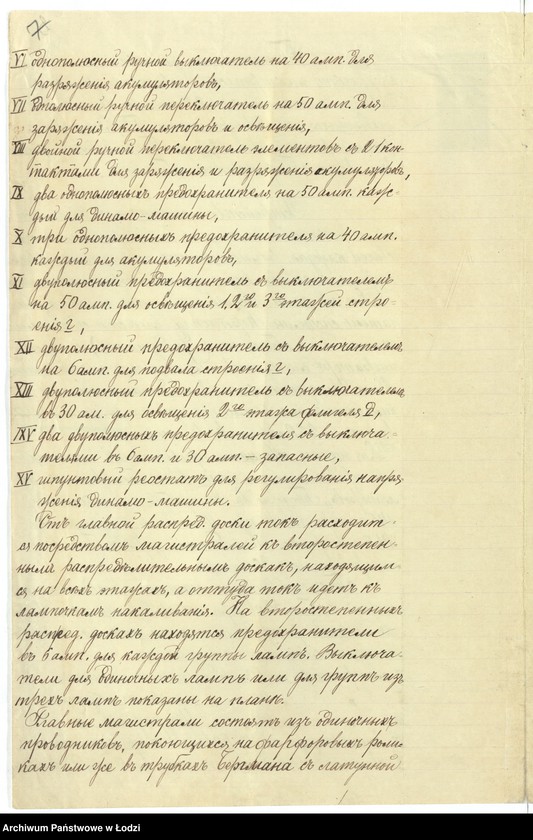 7
VI однополюсный ручной выключатель на 40 амп. для
разряженія акумуляторовъ,
VII полюсный ручной переключатель на 50 амп. для
заряженія акумуляторовъ и освѣщенія,
VIII двойной ручной переключатель элементовъ съ 21 кон-
тактами для заряженія и разряженія акумуляторовъ,
IX два однополюсныхъ предохранителя на 50 амп. каж-
дый для динамо-машины,
X три однополюсныхъ предохранителя на 40 амп.
каждый для акумуляторовъ,
XI двуполюсный предохранитель съ выключателемъ
на 50 амп. для освѣщенія 1, 2го и 3го этажей стро-
енія г,
XII двуполюсный предохранитель съ выключателемъ
на 6 амп. для подвала строенія г,
XIII двуполюсный предохранитель съ выключателемъ
въ 30 ам. для освѣщенія 2го этажа флигеля
XIV два двуполюсныхъ предохранителя съ выключа-
телями въ 6 амп. и 30 амп. – запасные,
XV шунтовый реостатъ для регулированія напря-
женія динамо-машины.
Отъ главной распред. доски токъ расходит-
ся посредствомъ магистралей къ второстепен-
нымъ распредѣлительнымъ доскамъ, находящим-
ся на всѣхъ этажахъ, а оттуда токъ идетъ къ
лампочкамъ накаливанія. На второстепенныхъ
распред. доскахъ находятся предохранители
въ 6 амп. для каждой группы лампъ. Выключа-
тели для одиночныхъ лампъ или для группъ изъ
трехъ лампъ показаны на планѣ.
Главные магистрали состоятъ изъ одиночныхъ
проводниковъ, покоющихся на фарфоровыхъ роли-
кахъ или же въ трубкахъ Бергмана съ латунной
Archiwum Państwowe w Łodzi